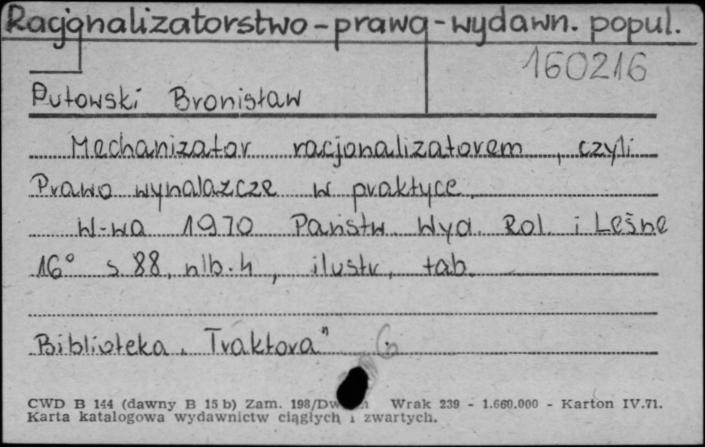 Racjonalizatorstwo - prawo - wydawn. popul.
160216
Putowski Bronisław
Mechanizator racjonalizatorem, czyli
Prawo wynalazcze w praktyce.
W-wa 1970 Państw. Wyd. Rol. i Leśne
16° s. 88, nlb. 4, ilustr., tab.
Biblioteka „Traktora"
CWD B 144 (dawny B 15 b) Zam. 198/ Wrak 239 - 1.660.000 - Karton IV.71.
Karta katalogowa wydawnictw ciągłych i zwartych.